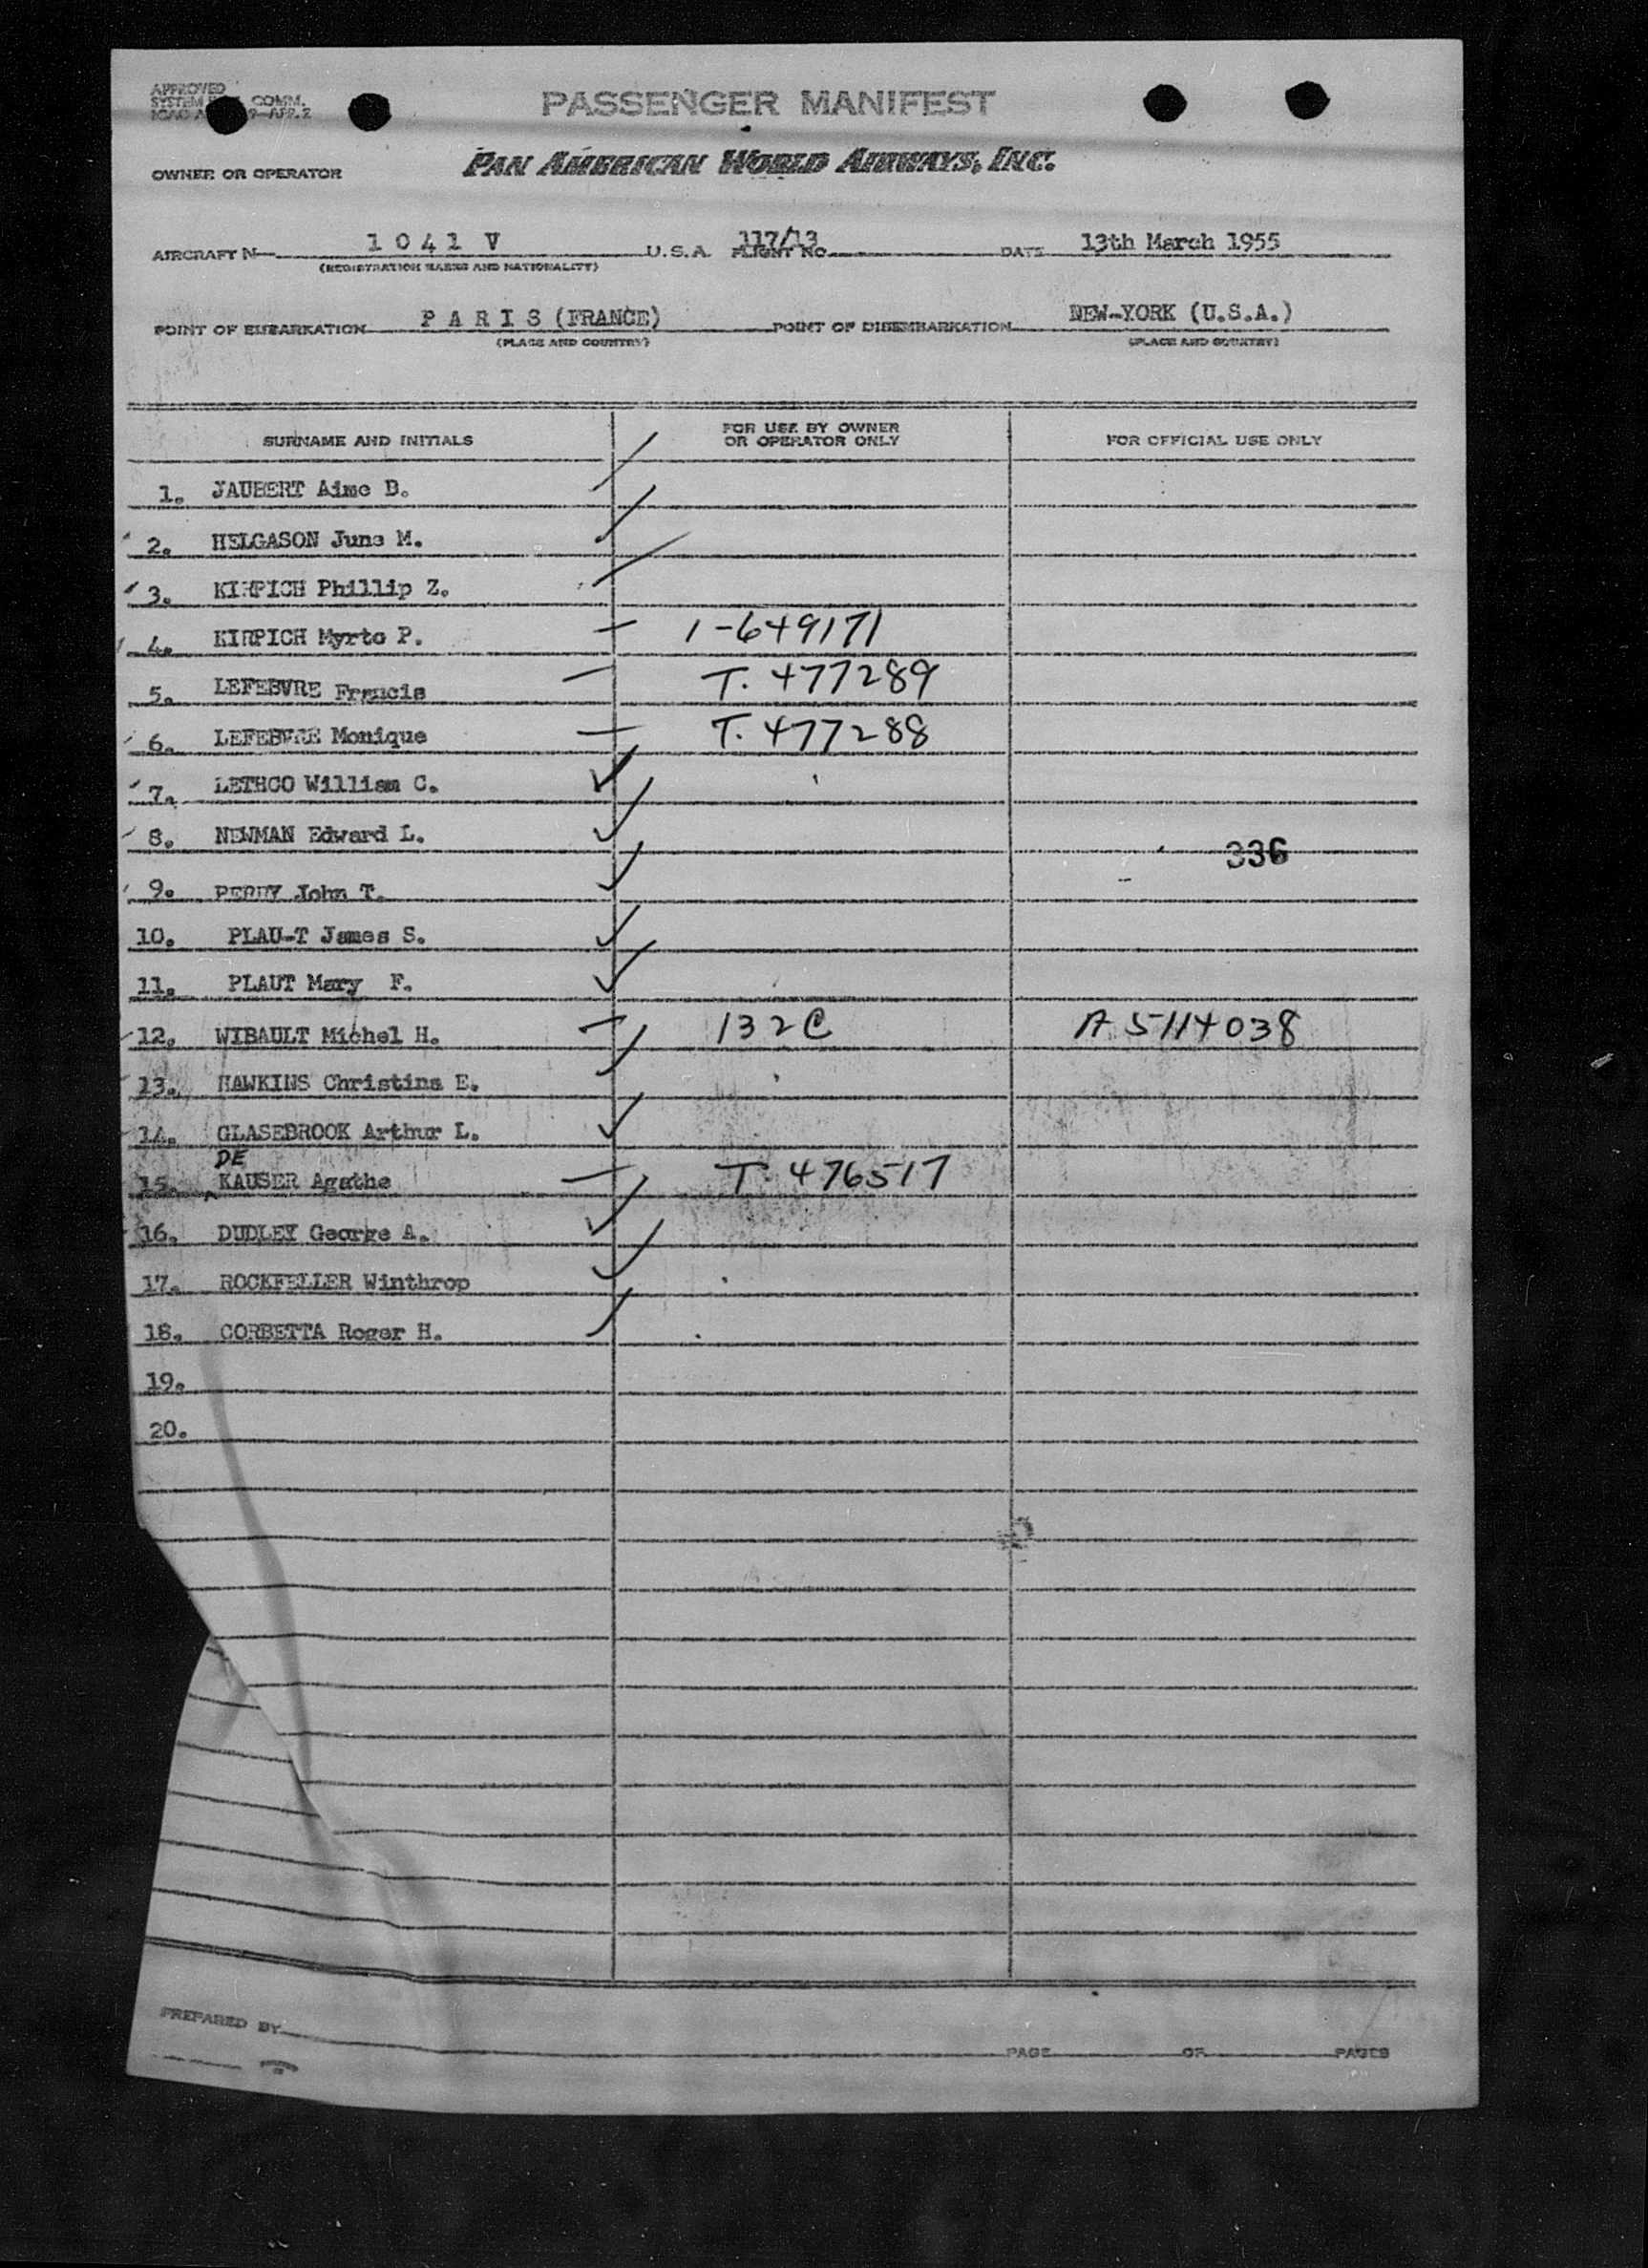 APPROVED
SYSTEM COMM.
PASSENGER MANIFEST
OWNER OR OPERATOR PAN AMERICAN WORLD AIRWAYS, INC.
AIRCRAFT N 1041 V U.S.A. FLIGHT NO. 117/13 DATE 13th March 1955
(REGISTRATION MARKS AND NATIONALITY)
POINT OF EMBARKATION P A R I S (FRANCE) POINT OF DISEMBARKATION NEW-YORK (U.S.A.)
(PLACE AND COUNTRY) (PLACE AND COUNTRY)
SURNAME AND INITIALS FOR USE BY OWNER OR OPERATOR ONLY FOR OFFICIAL USE ONLY
1. JAUBERT Aime B.
2. HELGASON June M.
3. KIRPICH Phillip Z.
4. KIRPICH Myrto P. 1-649171
5. LEFEBVRE Francis T. 477289
6. LEFEBVRE Monique T. 477288
7. LETHCO William C.
8. NEWMAN Edward L.
336
9. PERRY John T.
10. PLAU-T James S.
11. PLAUT Mary F.
12. WIBAULT Michel H. 132C A5114038
13. HAWKINS Christina E.
14. GLASEBROOK Arthur L.
DE
15. KAUSER Agathe T. 476517
16. DUDLEY George A.
17. ROCKFELLER Winthrop
18. CORBETTA Roger H.
19.
20.
PREPARED BY PAGE OF PAGES